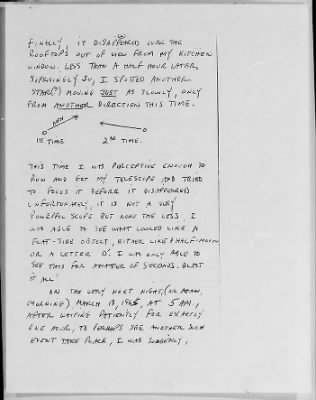 FINALLY, IT DISAPPEARED OVER THE
ROOFTOPS OUT OF VIEW FROM MY KITCHEN
WINDOW. LESS THAN A HALF HOUR LATER,
SUPRISINGLY SO, I SPOTTED ANOTHER
STAR(?) MOVING JUST AS SLOWLY, ONLY
FROM ANOTHER DIRECTION THIS TIME.
1ST TIME 2ND TIME.
THIS TIME I WAS PERCEPTIVE ENOUGH TO
RUN AND GET MY TELESCOPE AND TRIED
TO FOCUS IT BEFORE IT DISAPPEARED
UNFORTUNATELY, IT IS NOT A VERY
POWERFUL SCOPE BUT NONE THE LESS, I
WAS ABLE TO SEE WHAT LOOKED LIKE A
FLAT-SIDE OBJECT, EITHER LIKE A HALF-MOON
OR A LETTER D'. I WAS ONLY ABLE TO
SEE THIS FOR A MATTER OF SECONDS. BLAST
IT ALL!
ON THE VERY NEXT NIGHT, (OR AGAIN,
MORNING) MARCH 13, AT 5 AM.,
AFTER WAITING PATIENTLY FOR EXACTLY
ONE HOUR, TO PERHAPS SEE ANOTHER SUCH
EVENT TAKE PLACE, I WAS SUDDENLY,